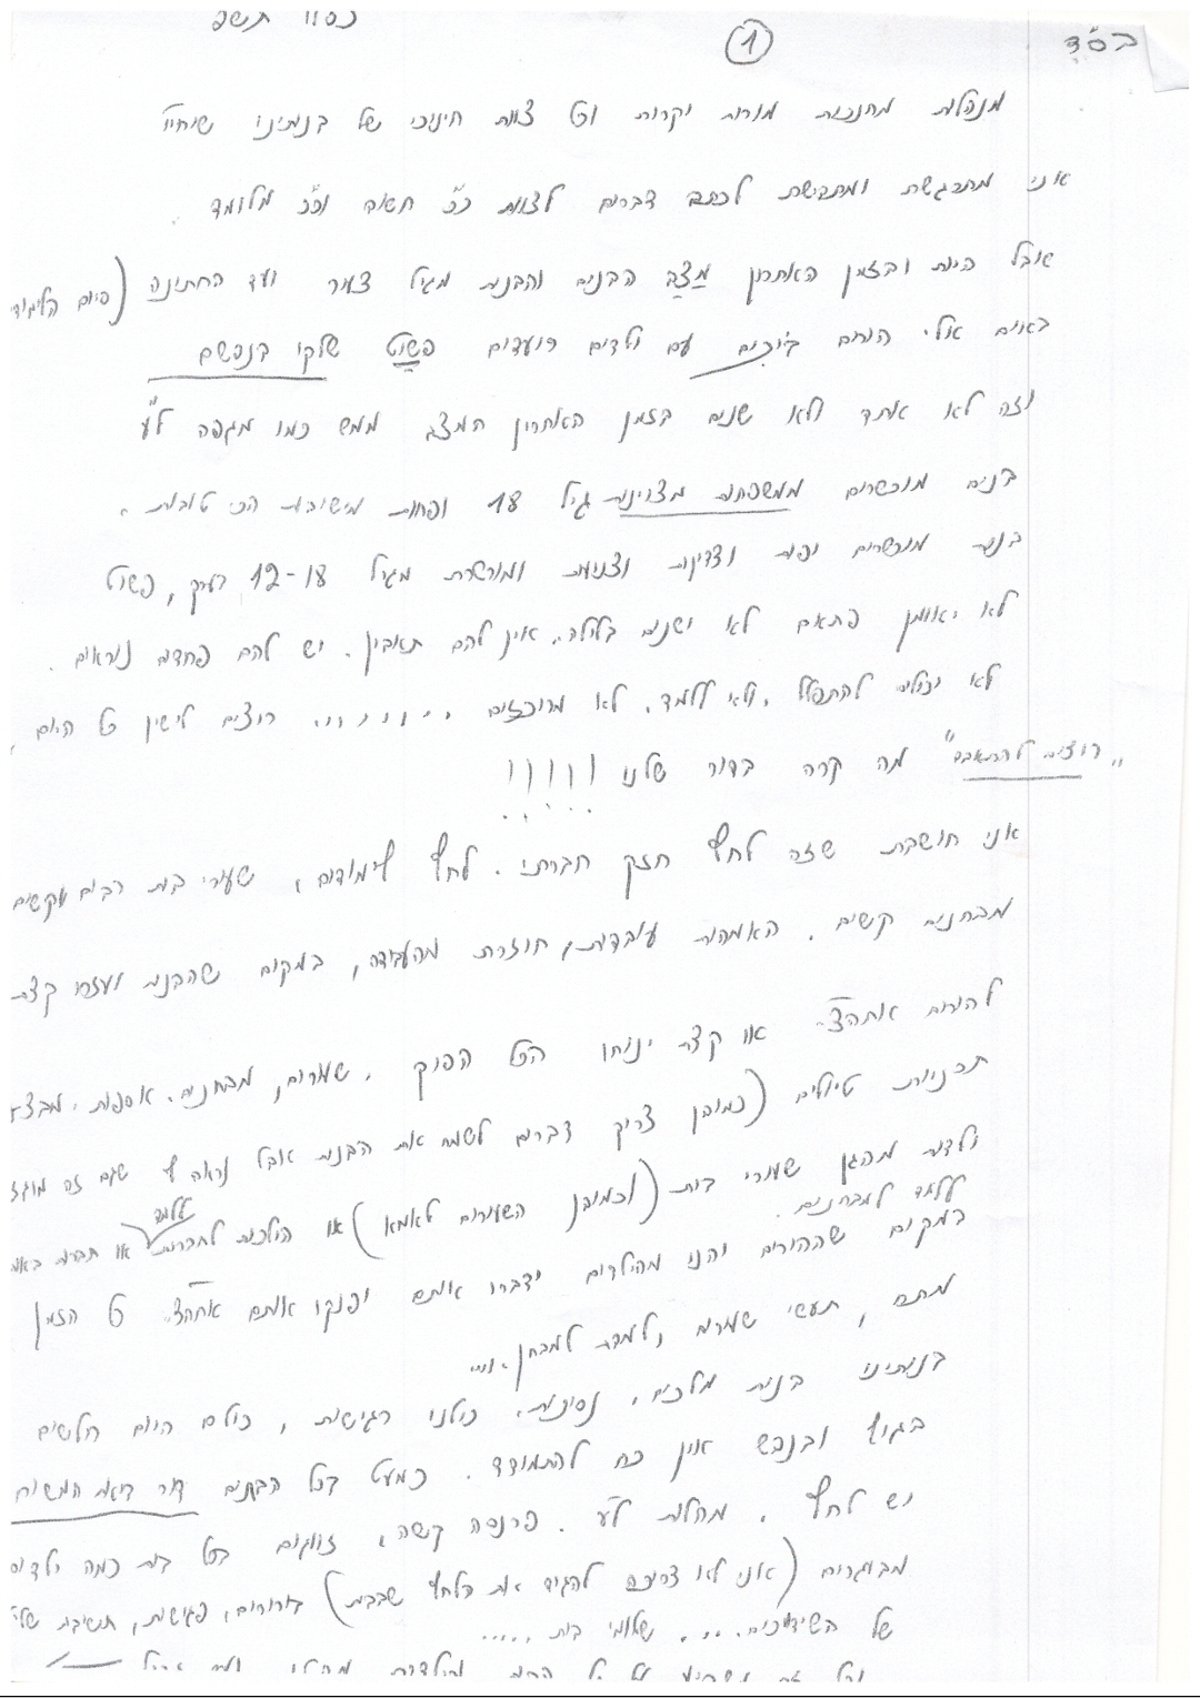 בס"ד
1
כסלו תשפ
מנהלות מחנכות מורות יקרות וכל צוות חינוכי של בנותינו שיחי'
אני מתרגשת ומתביישת לכתוב דברים לצוות כ"כ חשוב וכ"כ מלומד.
אבל היות ובזמן האחרון מצב הבנים והבנות מגיל צעיר ועד החתונה (סיום הלימודי
באים אלי הורים בוכים עם ילדים רועדים פשוט שלקו בנפשם
וזה לא אחד ולא שנים בזמן האחרון המצב ממש כמו מגפה ל"ע
בנים מוכשרים ממשפחות מצוינות גיל 18 ופחות מישיבות הכי טובות.
בנות מוכשרים יפות וצדיקות וצנועות ומוכשרות מגיל 12-18 בערך, פשוט
לא יאומן פתאם לא ישנים בלילה. אין להם תאבין. יש להם פחדים נוראים.
לא יכולים להתפלל, ולא ללמד. לא מרוכזים ........ רוצים לישין כל היום,
"רוצים להתאבד" מה קרה בדור שלנו !!!!!
אני חושבת שזה לחץ חזק חברתי. לחץ לימודים, שעורי בית רבים וקשים
מבחנים קשים. האמהות עובדות, חוזרת מהעבודה, במקום שהבנות יעזרו קצת
להורים אותה"צ או קצת ינוחו הכל הפוך. שעורים, מבחנים. אספות. מבצ
תכניות טיולים (כמובן צריך דברים לשמח את הבנות אבל נראה לי שגם זה מוגז
ילדות מהגן שעורי בית (וכמובן השעורים לאמא) או הולכות לחברות ללמד או חברות באות
ללמד למבחנים.
במקום שההורים יהנו מהילדים ידברו אותם ויפנקו אותם אחה"צ כל הזמן
מתח, תעשי שעורים, למדת למבחן. ....
בנותינו בנות מלכים, נסיכות. כולנו רגישות, כולם היום חלשים
בגוף ובנפש אין כח להתמודד. כמעט בכל הבתים דור המשיח
יש לחץ. מחלות ל"ע. פרנסה קשה, זווגים בכל בית כמה ילדים
מבוגרים (אני לא צריכה להגיד את הלחץ שבבית) בירורים, פגישות, תשובות שלי
של השידוכים.... שלומי בית .....
וכל זה משפיע על כל הבית והילדות